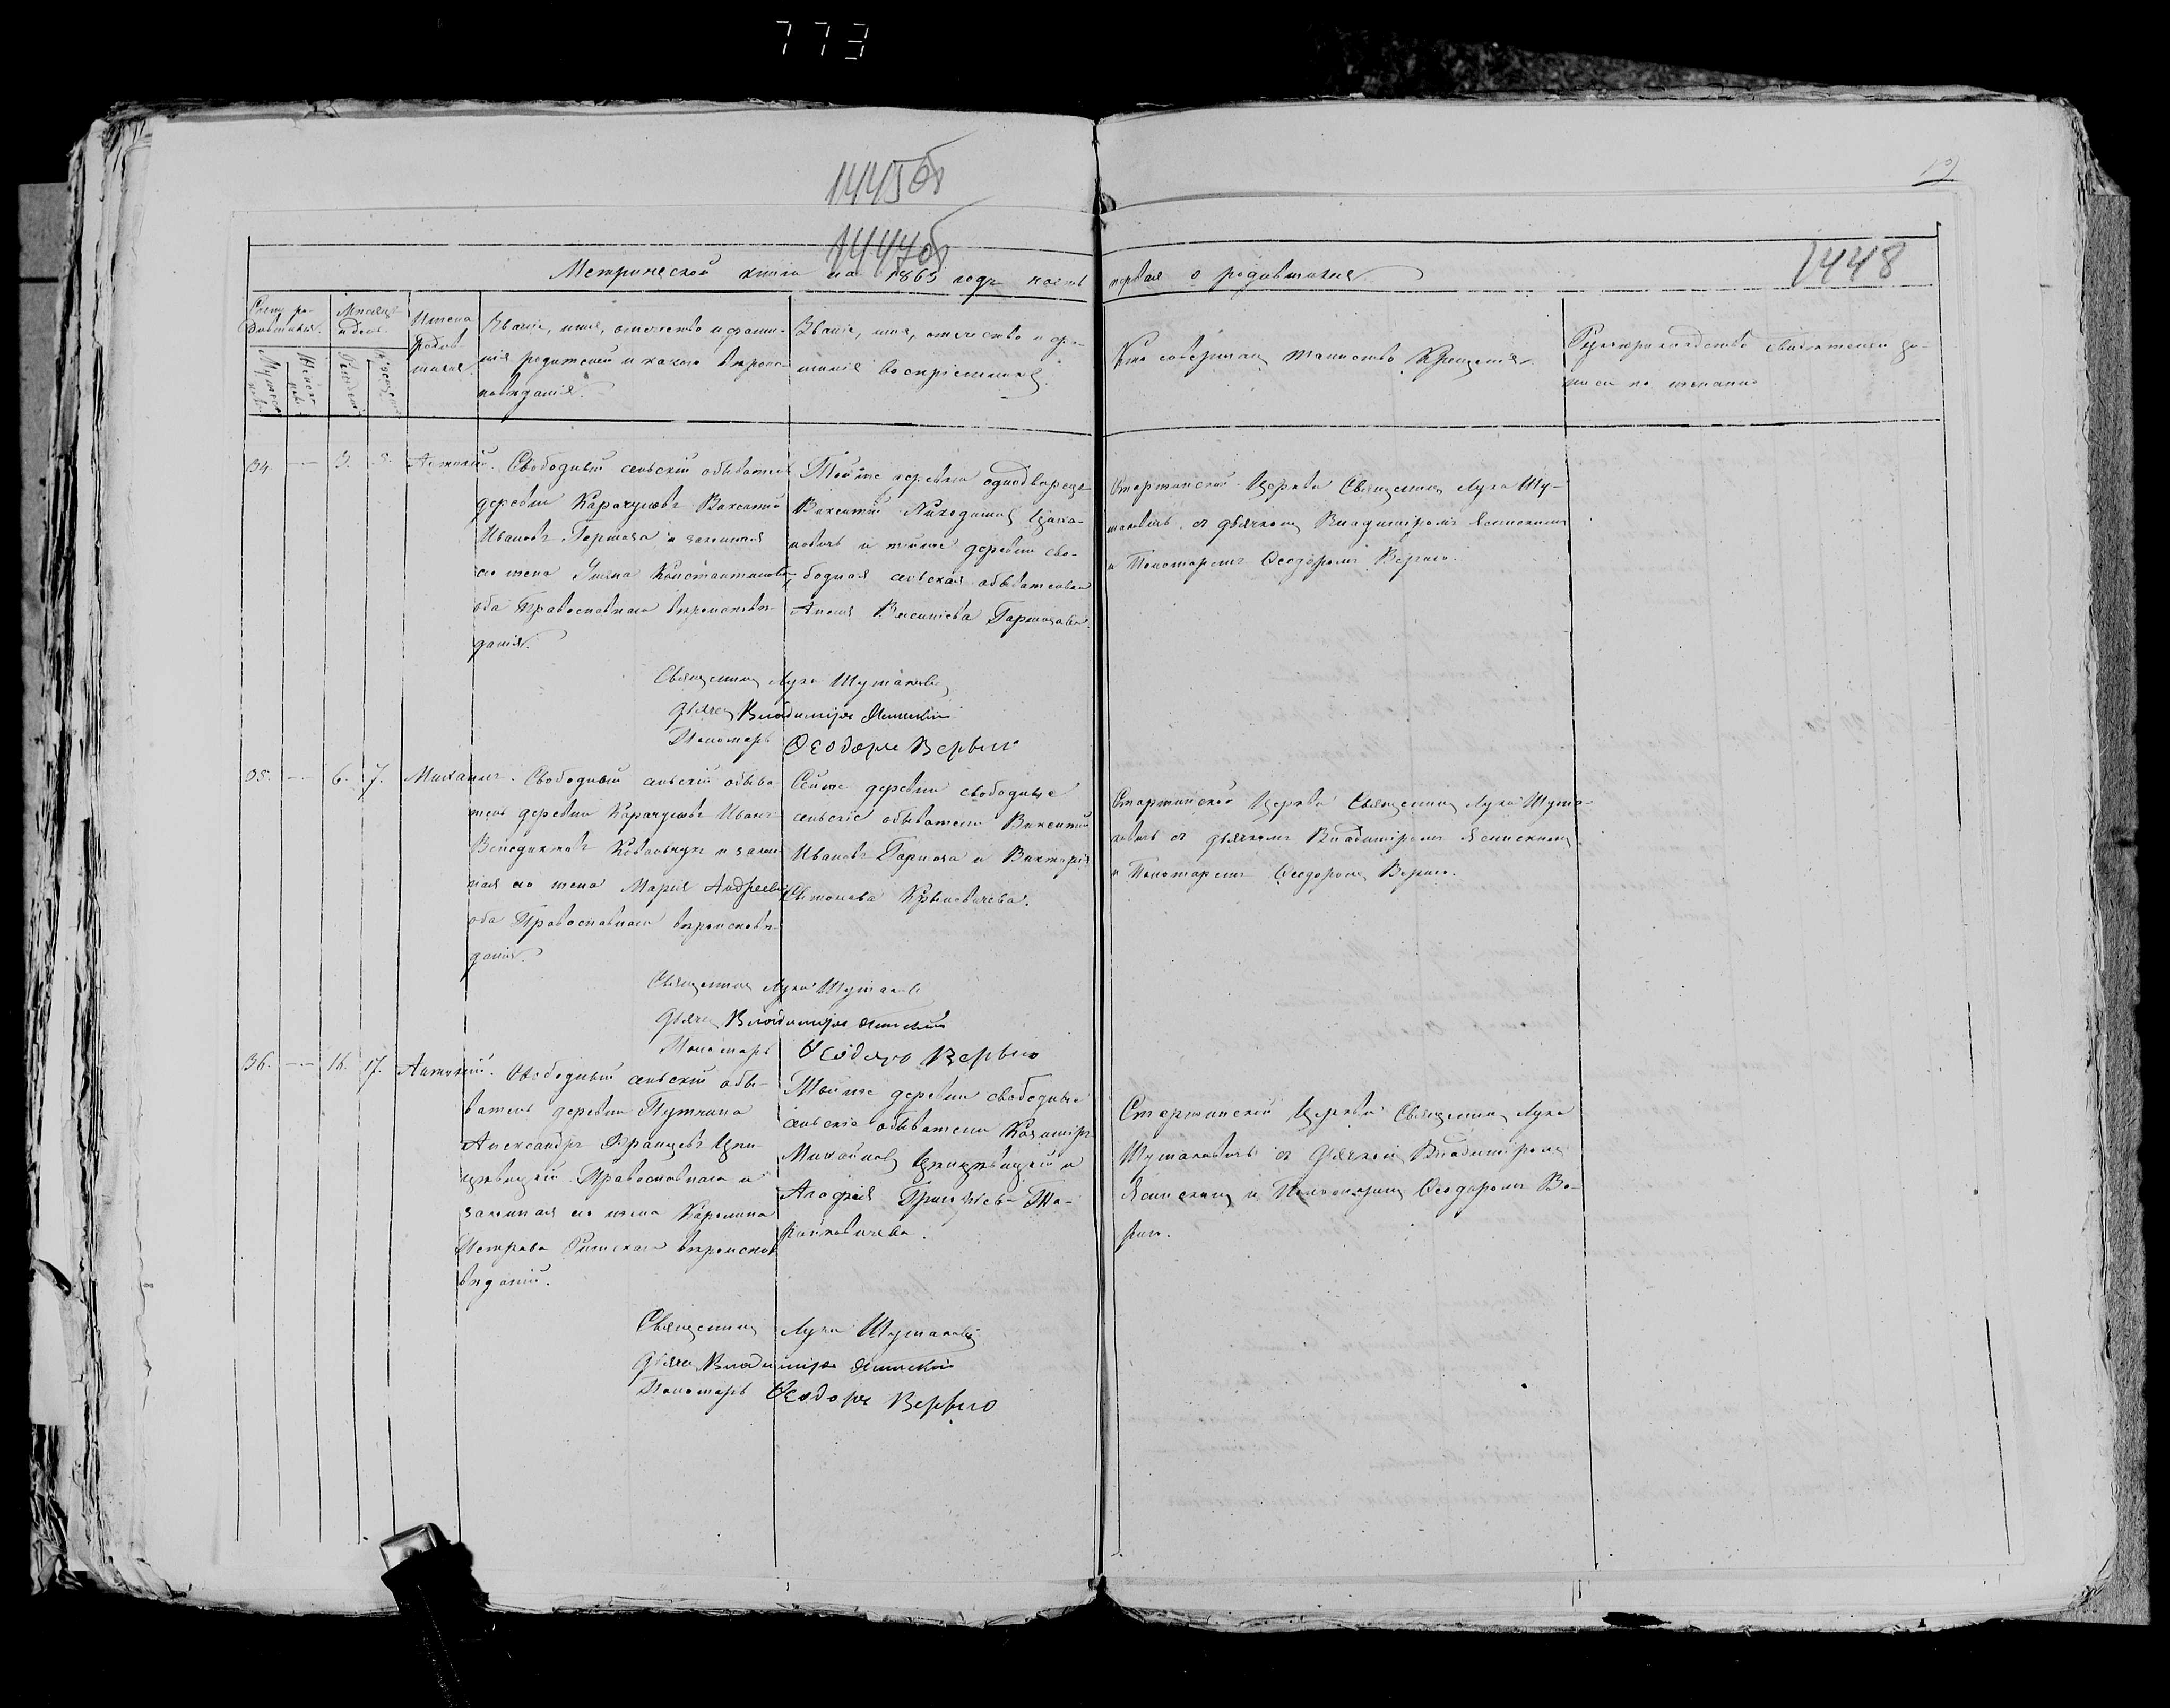 773
1445об
1447об
1448
Метрической книги на 1865 годъ часть первая о родившихся
Счетъ ро-
дившихся.
Мужеска
Женска
Месяцъ
и день.
Рожденія
Крещенія
Имена
родив-
шихся.
Званіе, имя, отечество и фами-
лія родителей и какого вѣроис-
повѣданія.
Званіе, имя, отечество и фа-
милія воспріемниковъ.
Кто совершалъ таинство Крещенія.
Рукоприкладство свидѣтелей за-
писи по желанію.
34. — 3. 5. Антоній.
Свободный сельскій обыватель
деревни Карачуновъ Викентій
Ивановъ Гармоза и законная
его жена Ульяна Константинова
оба Православнаго вѣроисповѣ-
данія.
Той же деревни однодворецъ
Викентій Никодимовъ
и тойже деревни сво-
бодная сельская обывателька
Викентіева Гармозова.
Церкви Священникъ Лука Шу-
маковичъ съ дьячкомъ Владиміромъ Ясинскимъ
и Пономаремъ Ѳеодоромъ Вериго.
Священникъ Лука Шумаковичъ
Дьячекъ Владиміръ Ясинскій
Пономарь Ѳеодоръ Верыго
35. — 6. 7. Михаилъ.
Свободный сельскій обыва-
тель деревни Карачуновъ Иванъ
Венедиктовъ Ковальчукъ и закон-
ная его жена Марія Андреева
оба Православнаго вѣроисповѣ-
данія.
Сей же деревни свободные
сельскіе обыватели Викентій
Ивановъ Гармоза и Викторія
Антонова
Церкви Священникъ Лука Шума-
ковичъ съ дьячкомъ Владиміромъ Ясинскимъ
и Пономаремъ Ѳеодоромъ Вериго.
Священникъ Лука Шумаковичъ
Дьячекъ Владиміръ Ясинскій
Пономарь Ѳеодоръ Верыго
36. — 16. 17. Антоній.
Свободный сельскій обы-
ватель деревни
Александръ Францевъ
Православнаго и
законная его жена Каролина
Петрова Римскаго вѣроиспо-
вѣданій.
Той же деревни свободные
сельскіе обыватели Казиміръ
Михайловъ и
Агафія
Церкви Священникъ Лука
Шумаковичъ съ Дьячкомъ Владиміромъ
Ясинскимъ и Пономаремъ Ѳеодоромъ Ве-
риго.
Священникъ Лука Шумаковичъ
Дьячекъ Владиміръ Ясинскій
Пономарь Ѳеодоръ Верыго